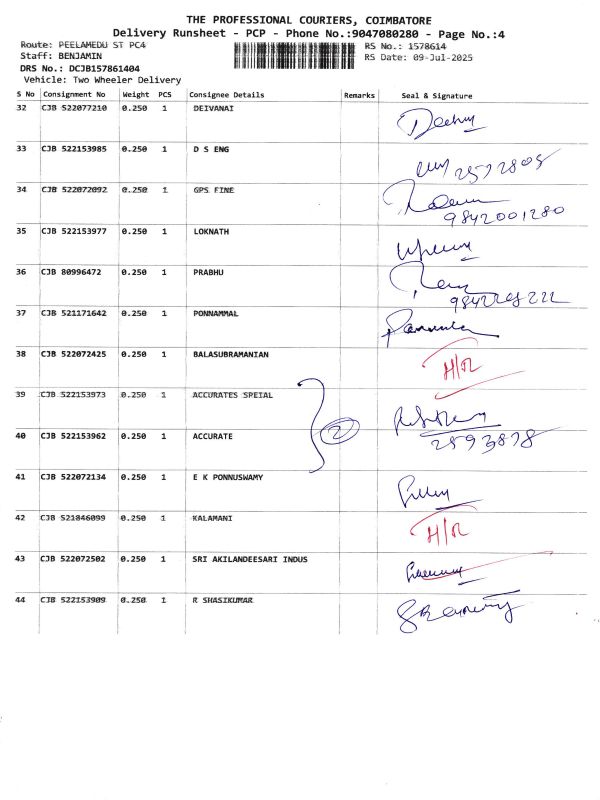 THE PROFESSIONAL COURIERS, COIMBATORE
Delivery Runsheet - PCP - Phone No.:9047080280 - Page No.:4
Route: PEELAMEDU ST PC4
RS No.: 1578614
Staff: BENJAMIN
RS Date: 09-Jul-2025
DRS No.: DCJB157861404
Vehicle: Two Wheeler Delivery
S No Consignment No Weight PCS Consignee Details Remarks Seal & Signature
32 CJB 522077210 0.250 1 DEIVANAI
33 CJB 522153985 0.250 1 D S ENG
34 CJB 522072092 0.250 1 GPS FINE
9842001280
35 CJB 522153977 0.250 1 LOKNATH
36 CJB 80996472 0.250 1 PRABHU
37 CJB 521171642 0.250 1 PONNAMMAL
38 CJB 522072425 0.250 1 BALASUBRAMANIAN
H/R
39 CJB 522153973 0.250 1 ACCURATES SPEIAL
40 CJB 522153962 0.250 1 ACCURATE 2
2593878
41 CJB 522072134 0.250 1 E K PONNUSWAMY
42 CJB 521846099 0.250 1 KALAMANI
H/R
43 CJB 522072502 0.250 1 SRI AKILANDEESARI INDUS
44 CJB 522153909 0.250 1 R SHASIKUMAR